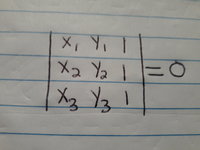 | x₁ y₁ 1 |
| x₂ y₂ 1 | = 0
| x₃ y₃ 1 |